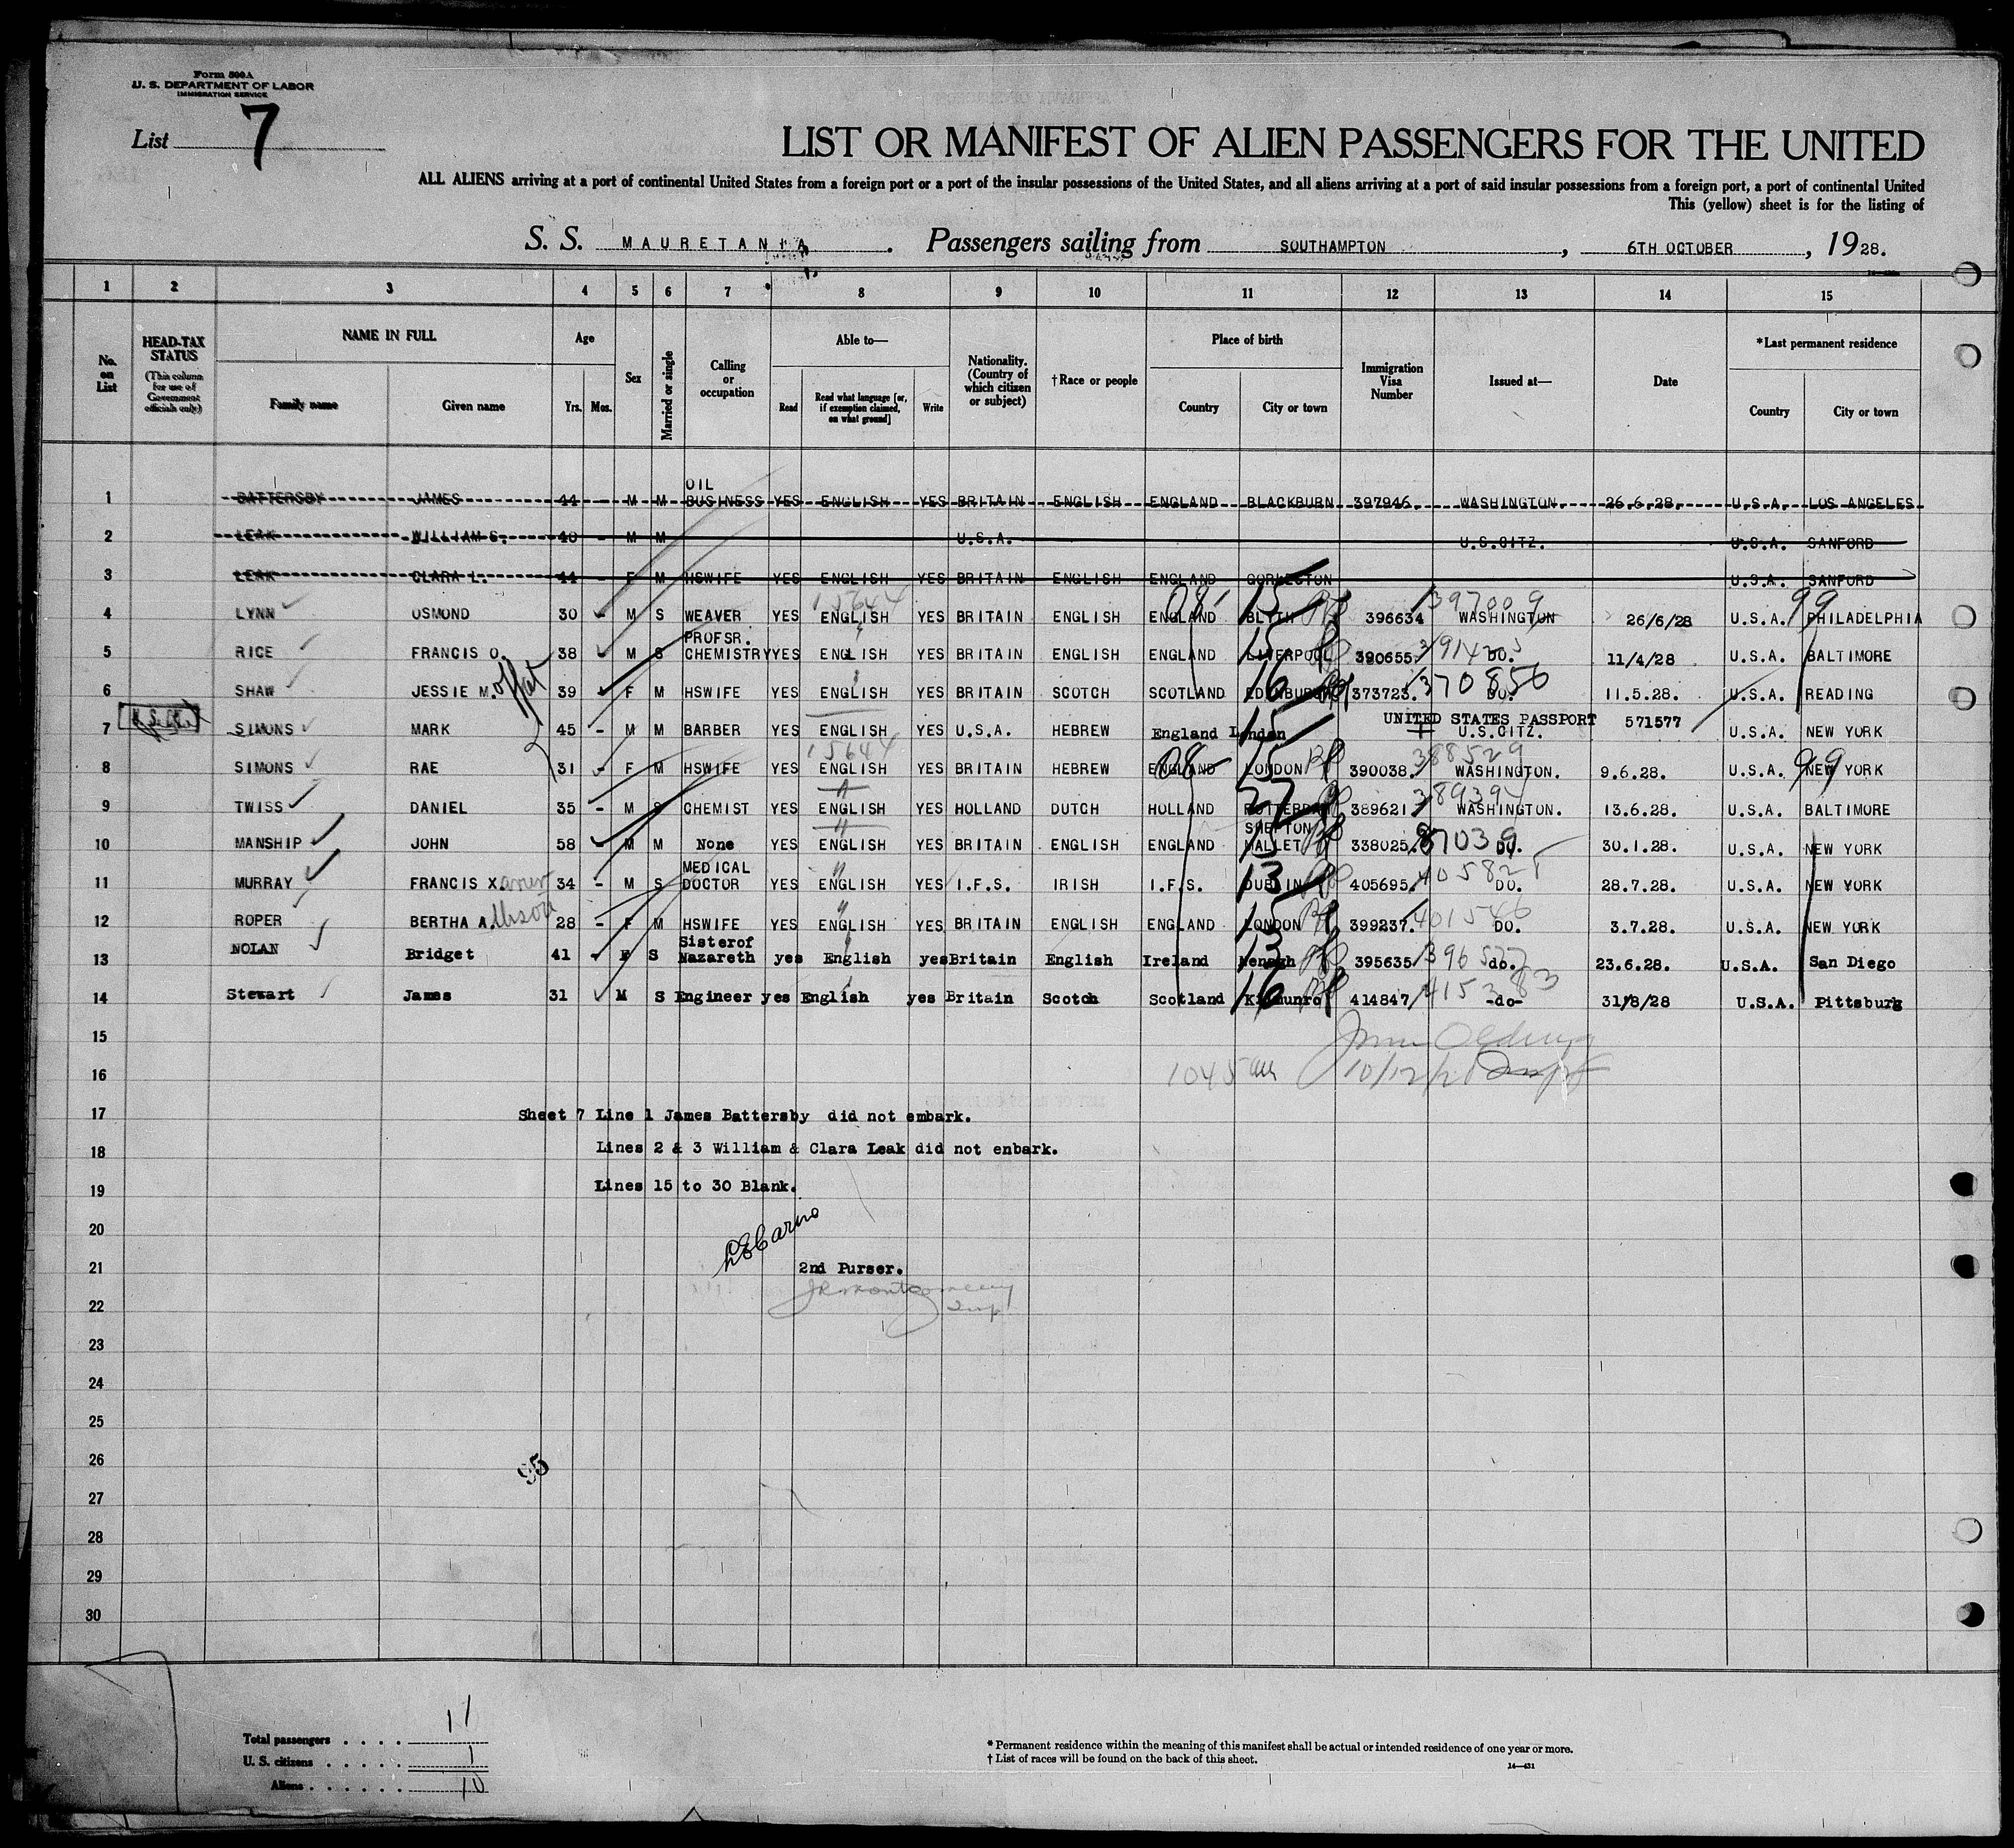 Form 500A
U. S. DEPARTMENT OF LABOR
IMMIGRATION SERVICE
List 7
LIST OR MANIFEST OF ALIEN PASSENGERS FOR THE UNITED
ALL ALIENS arriving at a port of continental United States from a foreign port or a port of the insular possessions of the United States, and all aliens arriving at a port of said insular possessions from a foreign port, a port of continental United
This (yellow) sheet is for the listing of
S. S. MAURETANIA. Passengers sailing from SOUTHAMPTON, 6TH OCTOBER, 1928.
1 2 3 4 5 6 7 8 9 10 11 12 13 14 15
No. on List
HEAD-TAX STATUS
(This column for use of Government officials only)
NAME IN FULL
Family name Given name
Age
Yrs. Mos.
Sex
Married or single
Calling or occupation
Able to—
Read Read what language [or, if exemption claimed, on what ground] Write
Nationality. (Country of which citizen or subject)
†Race or people
Place of birth
Country City or town
Immigration Visa Number
Issued at—
Date
*Last permanent residence
Country City or town
OIL
1 BATTERSBY JAMES 44 - M M BUSINESS YES ENGLISH YES BRITAIN ENGLISH ENGLAND BLACKBURN 397946. WASHINGTON. 26.6.28. U.S.A. LOS ANGELES
2 LEAK WILLIAM S. 40 - M M U.S.A. U.S.CITZ. U.S.A. SANFORD
3 LEAK CLARA L. 44 - F M HSWIFE YES ENGLISH YES BRITAIN ENGLISH ENGLAND GORLESTON U.S.A. SANFORD
15644 08 15 397009 99
4 LYNN OSMOND 30 - M S WEAVER YES ENGLISH YES BRITAIN ENGLISH ENGLAND BLYTH 396634 WASHINGTON 26/6/28 U.S.A. PHILADELPHIA
PROFSR. 15
5 RICE FRANCIS O. 38 M S CHEMISTRY YES ENGLISH YES BRITAIN ENGLISH ENGLAND LIVERPOOL 390655. DO. 11/4/28 U.S.A. BALTIMORE
16 370856
6 SHAW JESSIE M.offat 39 F M HSWIFE YES ENGLISH YES BRITAIN SCOTCH SCOTLAND EDINBURGH 373723. DO. 11.5.28. U.S.A. READING
15 UNITED STATES PASSPORT 571577
7 SIMONS MARK 45 - M M BARBER YES ENGLISH YES U.S.A. HEBREW England London U.S.CITZ. U.S.A. NEW YORK
15644 08 15 388529 99
8 SIMONS RAE 31 - F M HSWIFE YES ENGLISH YES BRITAIN HEBREW ENGLAND LONDON 390038. WASHINGTON. 9.6.28. U.S.A. NEW YORK
27 389394
9 TWISS DANIEL 35 - M S CHEMIST YES ENGLISH YES HOLLAND DUTCH HOLLAND ROTTERDAM 389621 WASHINGTON. 13.6.28. U.S.A. BALTIMORE
SHEPTON
10 MANSHIP JOHN 58 M M None YES ENGLISH YES BRITAIN ENGLISH ENGLAND MALLET 338025. DO. 30.1.28. U.S.A. NEW YORK
MEDICAL 13 405825
11 MURRAY FRANCIS X.avier 34 - M S DOCTOR YES ENGLISH YES I.F.S. IRISH I.F.S. DUBLIN 405695. DO. 28.7.28. U.S.A. NEW YORK
15 401546
12 ROPER BERTHA A. 28 - F M HSWIFE YES ENGLISH YES BRITAIN ENGLISH ENGLAND LONDON 399237. DO. 3.7.28. U.S.A. NEW YORK
Sister of 13
13 NOLAN Bridget 41 - F S Nazareth yes English yes Britain English Ireland Nenagh 395635 do. 23.6.28. U.S.A. San Diego
16 415383
14 Stewart James 31 M S Engineer yes English yes Britain Scotch Scotland 414847 -do- 31/8/28 U.S.A. Pittsburg
15
16 1045
17 Sheet 7 Line 1 James Battersby did not embark.
18 Lines 2 & 3 William & Clara Leak did not enbark.
19 Lines 15 to 30 Blank.
20
21 2nd Purser.
22
23
24
25
26
95
27
28
29
30
Total passengers . . . . 11
U. S. citizens . . . . . 1
Aliens . . . . . . 10
* Permanent residence within the meaning of this manifest shall be actual or intended residence of one year or more.
† List of races will be found on the back of this sheet.
14—431